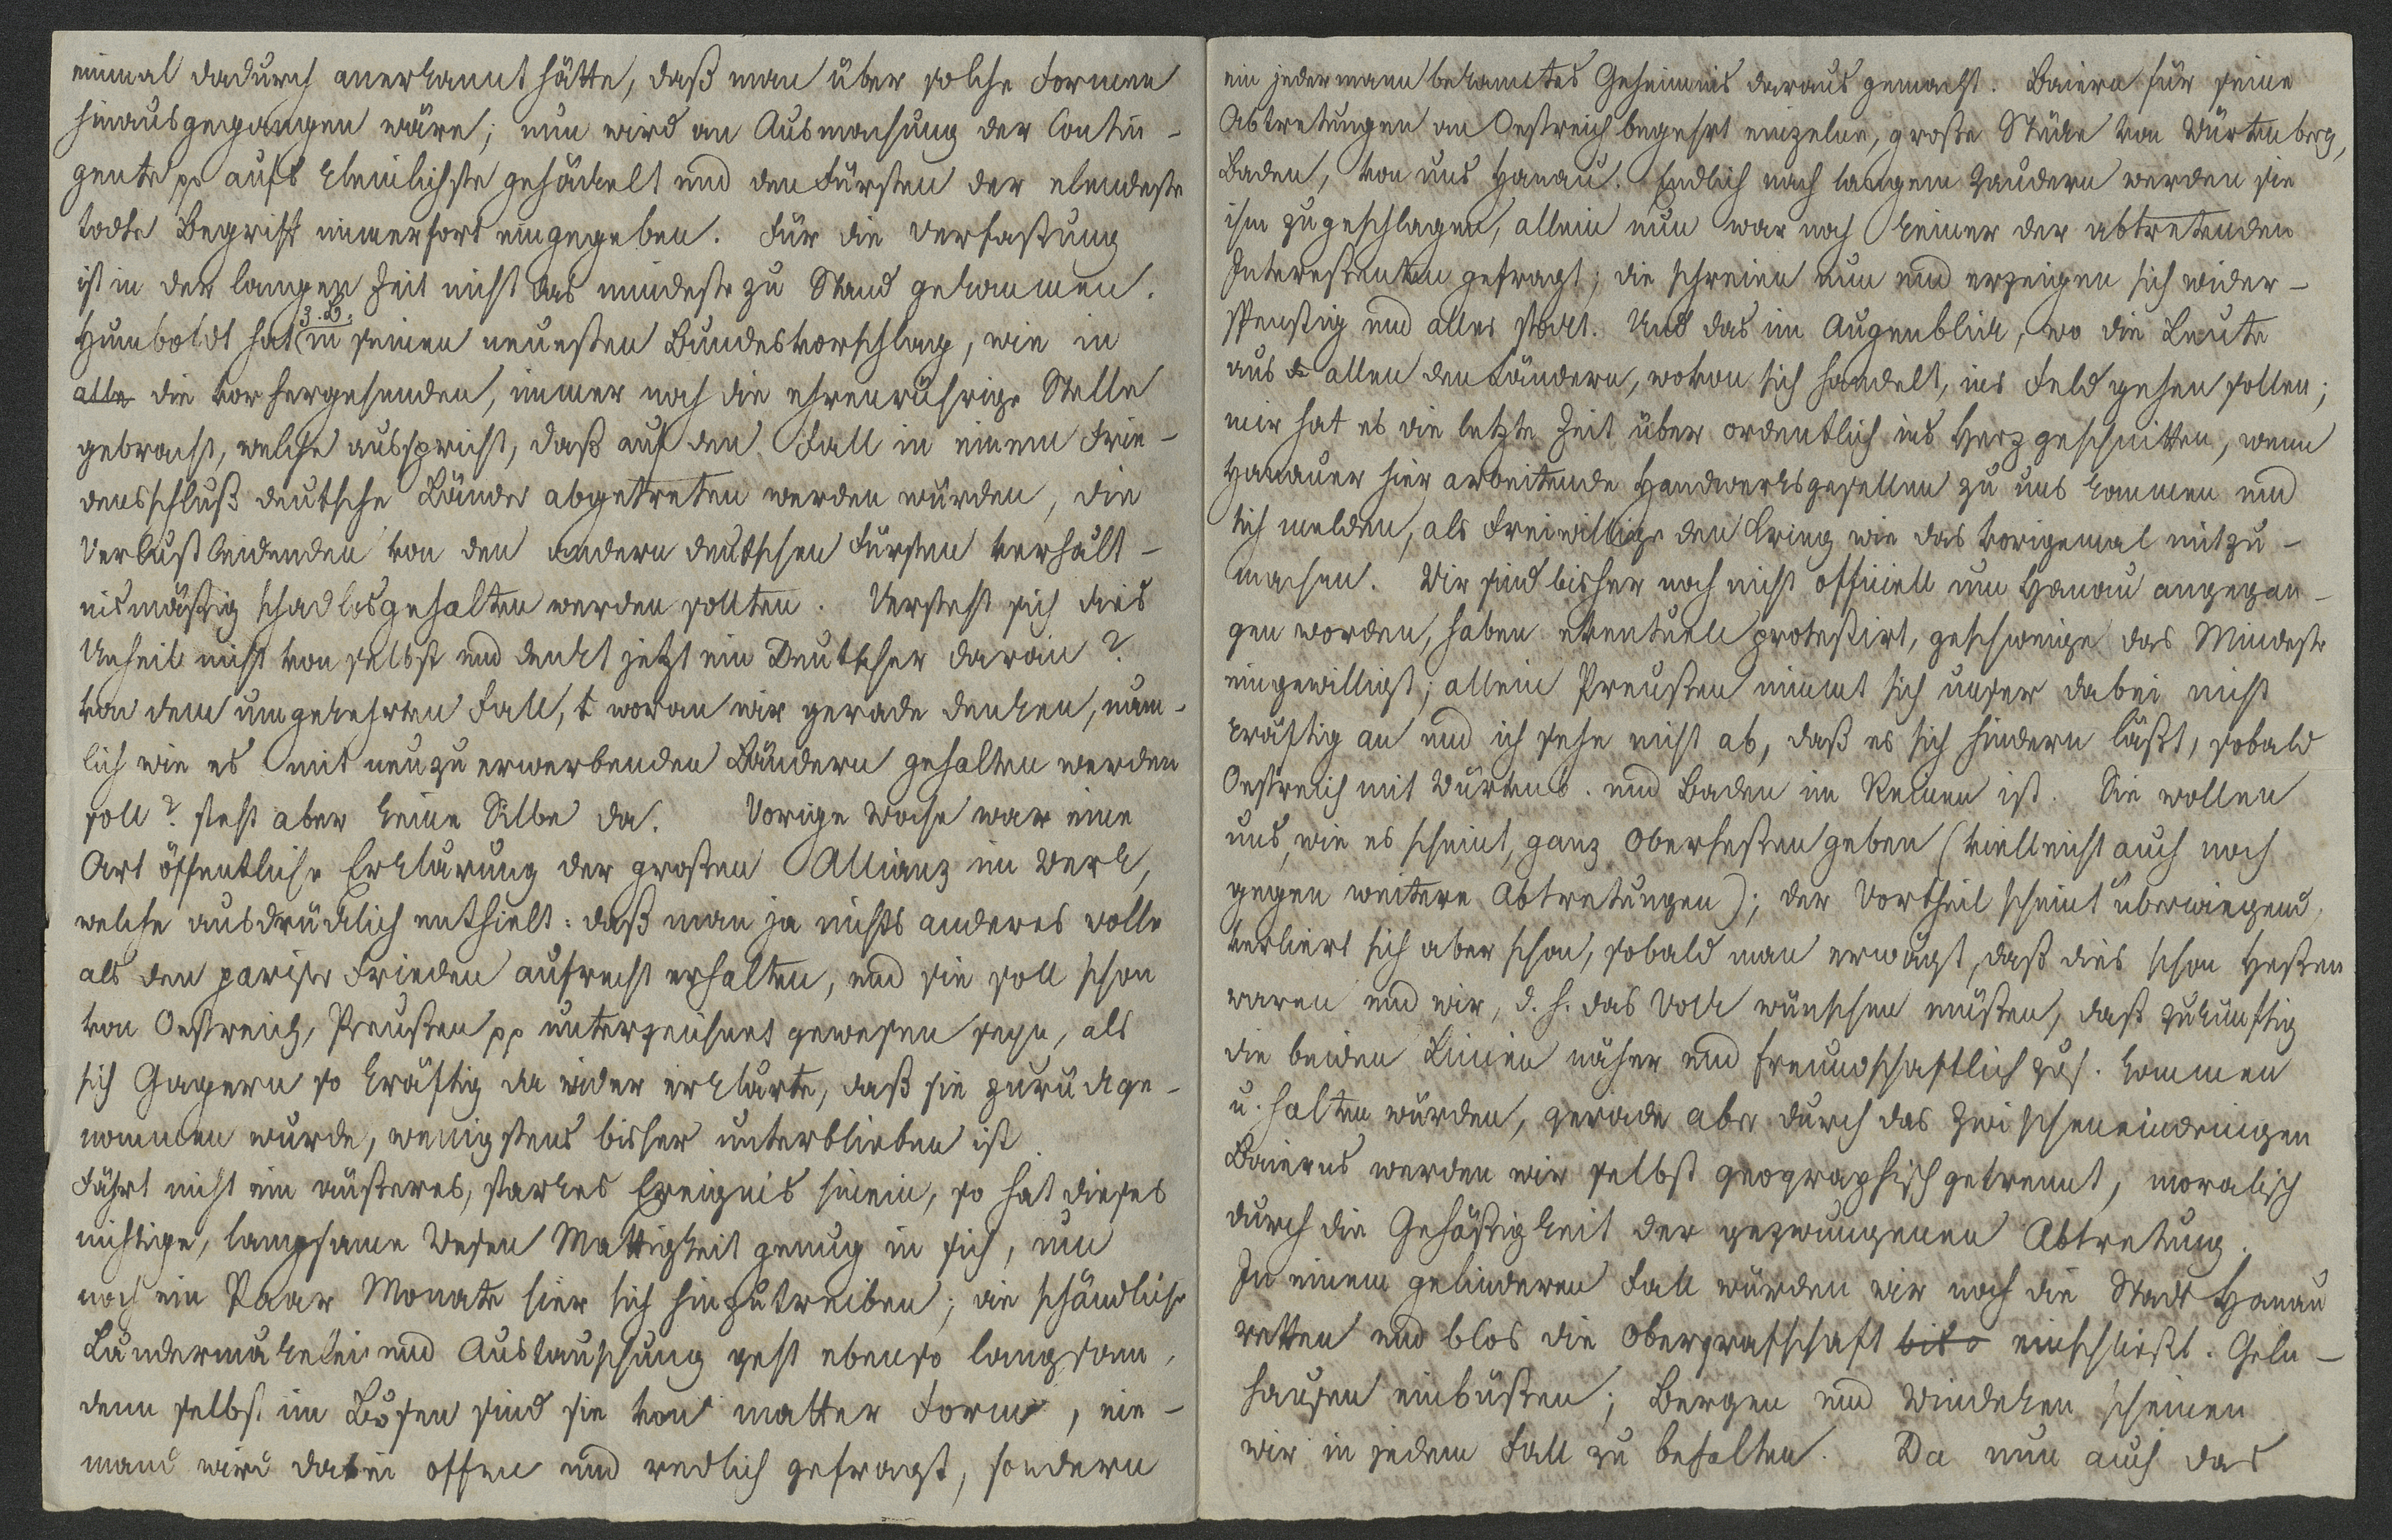 einmal dadurch anerkannt hätte, daß man über solche Formen
hinausgegangen wäre; nun wird an Ausmachung der Contin-
gente pp aufs kleinlichste gehäckelt und den Fürsten der elendeste
todte Begriff immerfort eingegeben. Für die Verfaßung
ist in der langen Zeit nicht das mindeste zu Stand gekommen.
Humboldt hat z. B. in seinen neuesten Bundesvorschlag, wie in
alle die vorhergehenden, immer noch die ehrenrührige Stelle
gebracht, welche ausspricht, daß auf den Fall in einem Frie-
densschluß deutsche Länder abgetreten werden würden, die
Verlust leidenden von den andern deutschen Fürsten verhält-
nismäßig schadlosgehalten werden sollten. Versteht sich dies
Unheil nicht von selbst und denkt jetzt ein Deutscher daran?
von dem umgekehrten Fall, t woran wir gerade denken, näm-
lich wie es mit neuzuerwerbenden Ländern gehalten werden
soll? steht aber keine Silbe da. Vorige Woche war eine
Art öffentliche Erklärung der großen Allianz im Werk,
welche ausdrücklich enthielt: daß man ja nichts anderes wolle
als den pariser Frieden aufrecht erhalten, und sie soll schon
von Oestreich, Preußen pp unterzeichnet gewesen seyn, als
sich Gagern so kräftig da wider erklärte, daß sie zurückge-
nommen wurde, wenigstens bisher unterblieben ist.
Fährt nicht ein äußeres, starkes Ereignis hinein, so hat dieses
nichtige, langsame Wesen Mattigkeit genug in sich, um
noch ein Paar Monate hier sich hinzutreiben; die schändliche
Ländermäkelei und Austauschung geht ebenso langsam,
denn selbst im Bösen sind sie von matter Form, nie-
mand wird dabei offen und redlich gefragt, sondern
ein jedermann bekanntes Geheimnis daraus gemacht. Baiern für seine
Abtretungen an Oestreich begehrt einzelne, große Stücke von Würtenberg,
Baden, von uns Hanau. Endlich nach langem Zaudern werden sie
ihm zugeschlagen, allein nun war noch keiner der abtretenden
Interessenten gefragt; die schreien nun und erzeigen sich wider-
spenstig und alles stockt. Und das im Augenblick, wo die Leute
aus d allen den Ländern, wovon sichs handelt, ins Feld gehen sollen;
mir hat es die letzte Zeit über ordentlich ins Herz geschnitten, wenn
Hanauer hier arbeitende Handwerksgesellen zu uns kommen und
sich melden, als Freiwillige den Krieg wie das vorigemal mitzu-
machen. Wir sind bisher noch nicht officiell um Hanau angegan-
gen worden, haben eventuell protestirt, geschweige das Mindeste
eingewilligt; allein Preußen nimmt sich unser dabei nicht
kräftig an und ich sehe nicht ab, daß es sich hindern läßt, sobald
Oestreich mit Würtenb. und Baden im Reinen ist. Sie wollen
uns, wie es scheint, ganz Oberhessen geben (vielleicht auch noch
gegen weitere Abtretungen); der Vortheil scheint überwiegend,
verliert sich aber schon, sobald man erwägt, daß dies schon Hessen
waren und wir, d. h. das Volk wünschen müßten, daß zukünftig
die beiden Linien näher und freundschaftlich zus. kommen
u. halten würden, gerade aber durch das Zwischeneindringen
Baierns werden wir selbst geographisch getrennt, moralisch
durch die Gehäßigkeit der gezwungenen Abtretung.
In einem gelinderen Fall würden wir noch die Stadt Hanau
retten und blos die Obergrafschaft bis einschließl. Geln-
hausen einbüßen; Bergen und Windeken scheinen
wir in jedem Fall zu behalten. Da nun auch das